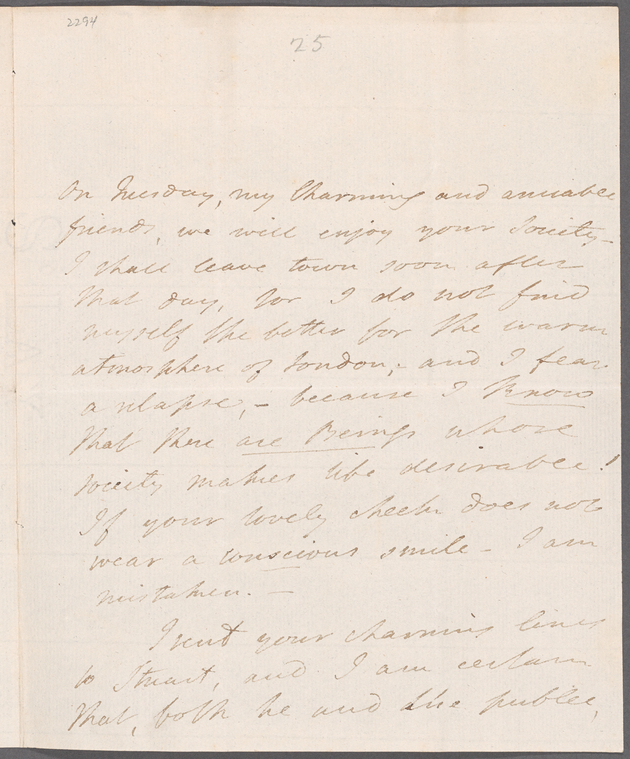 2294
25
On Tuesday, my Charming and amiable
friends, we will enjoy your Society –
I shall leave town soon after
that day, for I do not find
myself the better for the warm
atmosphere of London; – and I fear
a relapse, – because I know
that there are Beings whose
society makes life desirable!
If your lovely cheek does not
wear a conscious smile – I am
mistaken. –
I sent your charming lines
to Stuart, and I am certain
that, both he and the public,